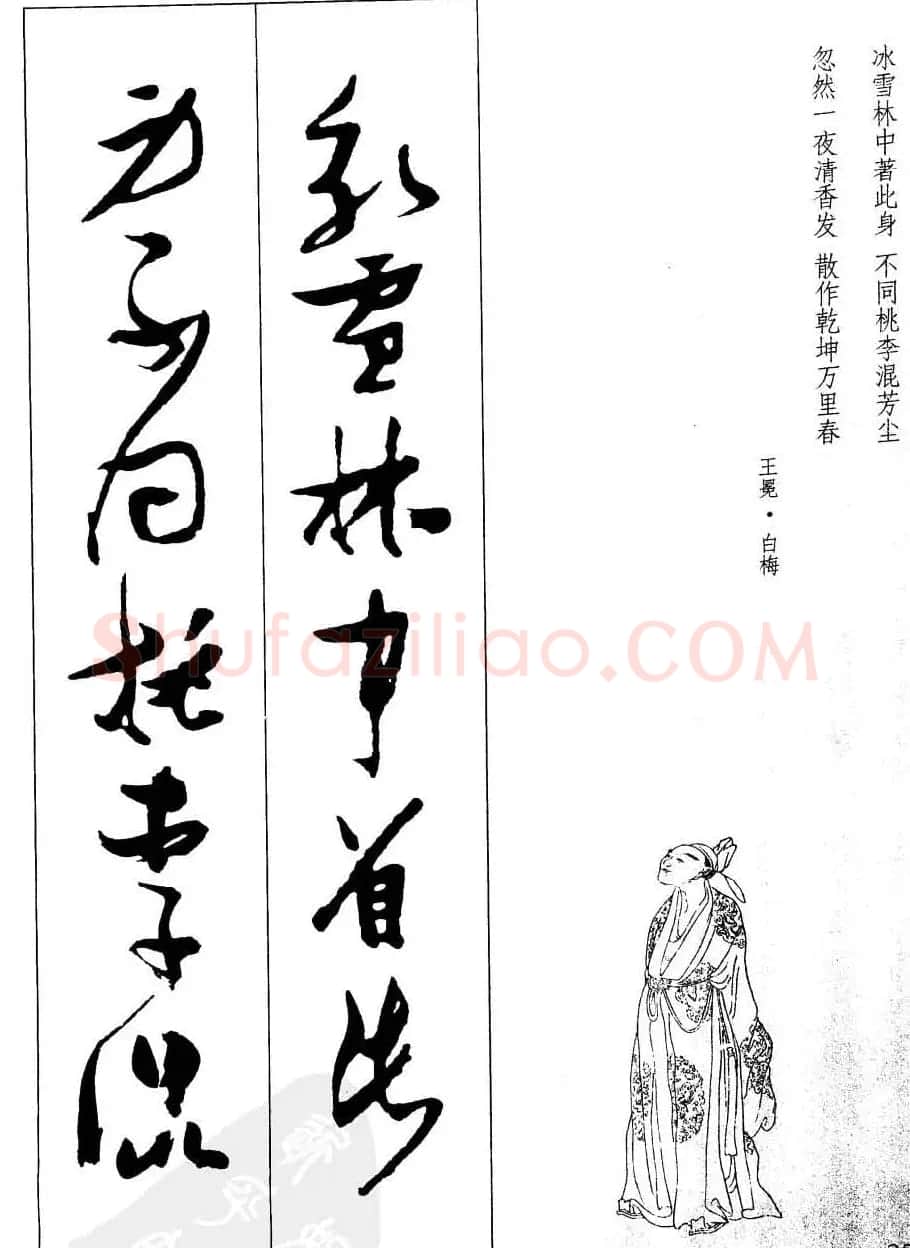 冰雪林中著此身 不同桃李混芳尘
忽然一夜清香发 散作乾坤万里春
王冕·白梅
冰雪林中著此
身不同桃李混
Shufaziliao.COM